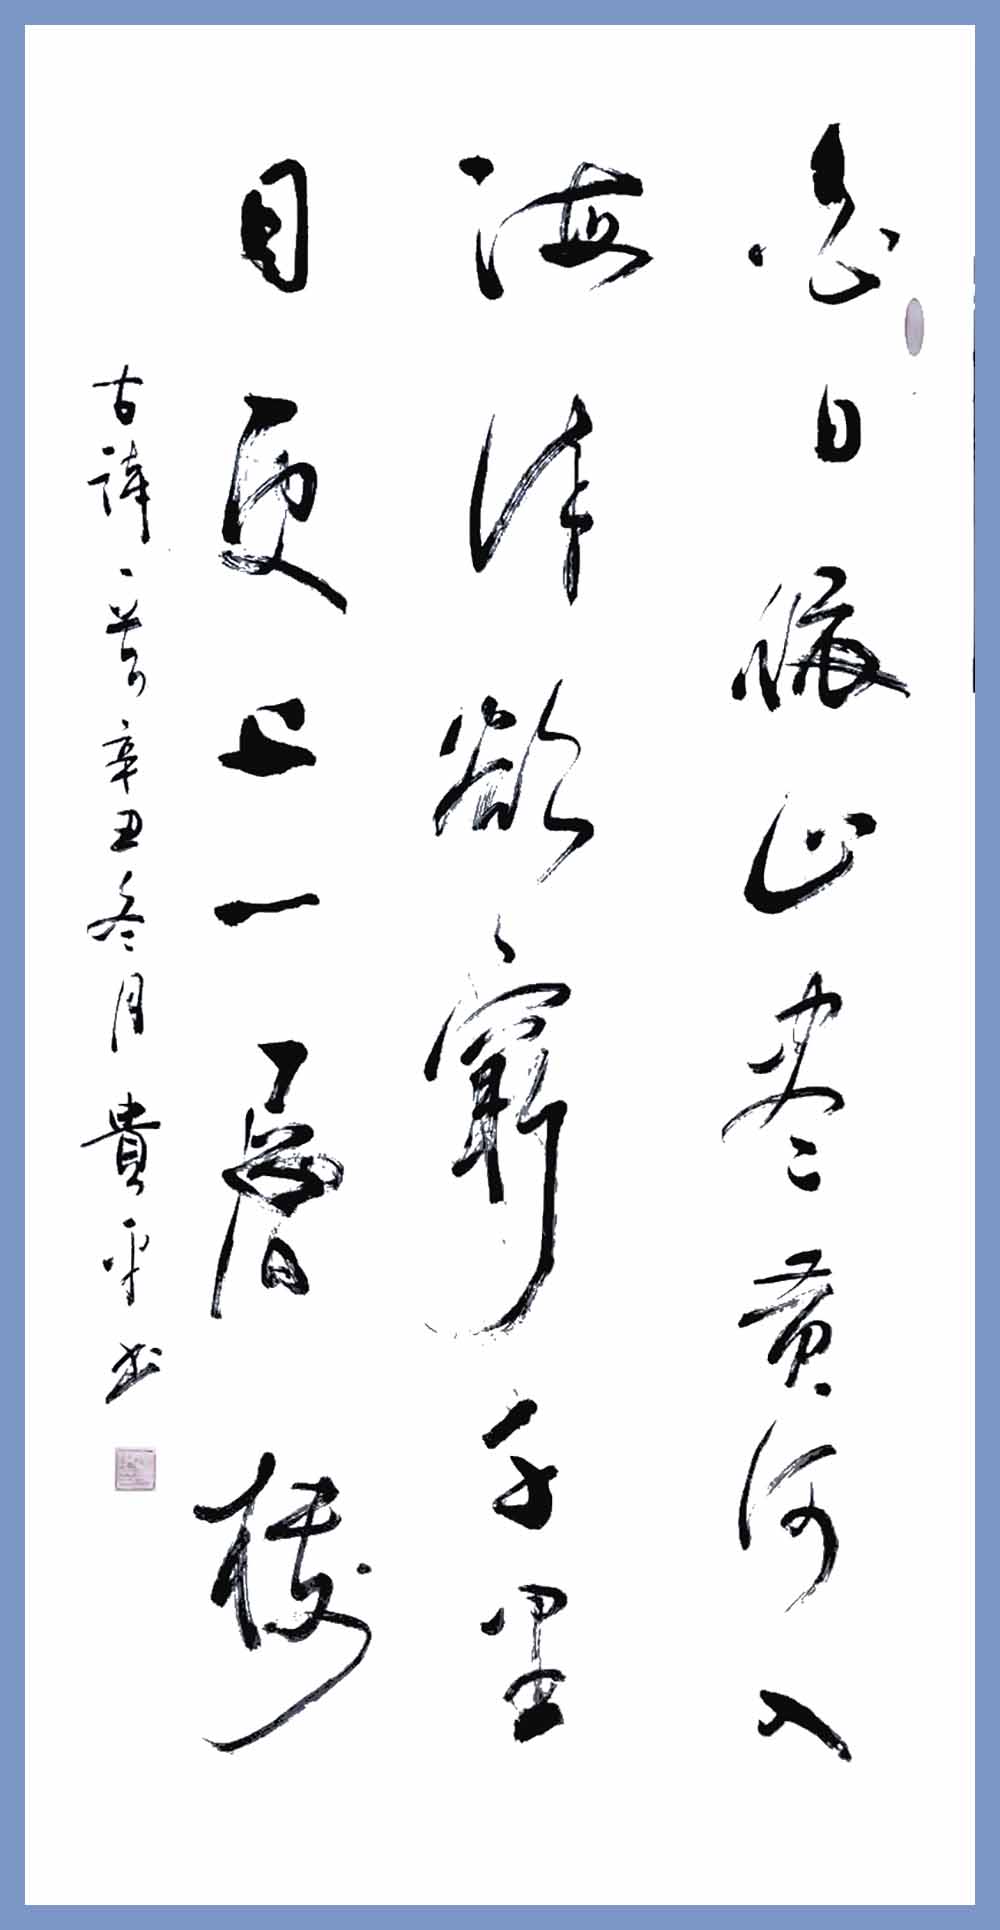 白日依山尽黄河入
海流欲窮千里
目更上一層楼
古詩一首辛丑冬月貴平书